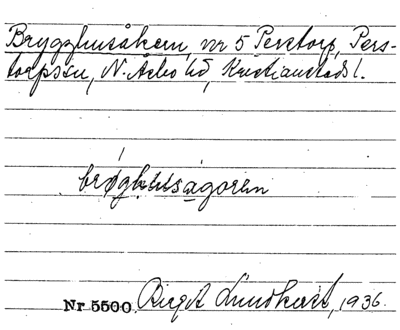 Brygghusåkern, nr 5 Perstorp, Pers-
torpssn, N. Åsbo hd, Kristianstads l.
brøghusågoren
Nr 5500 Birgit Lundkvist, 1936.